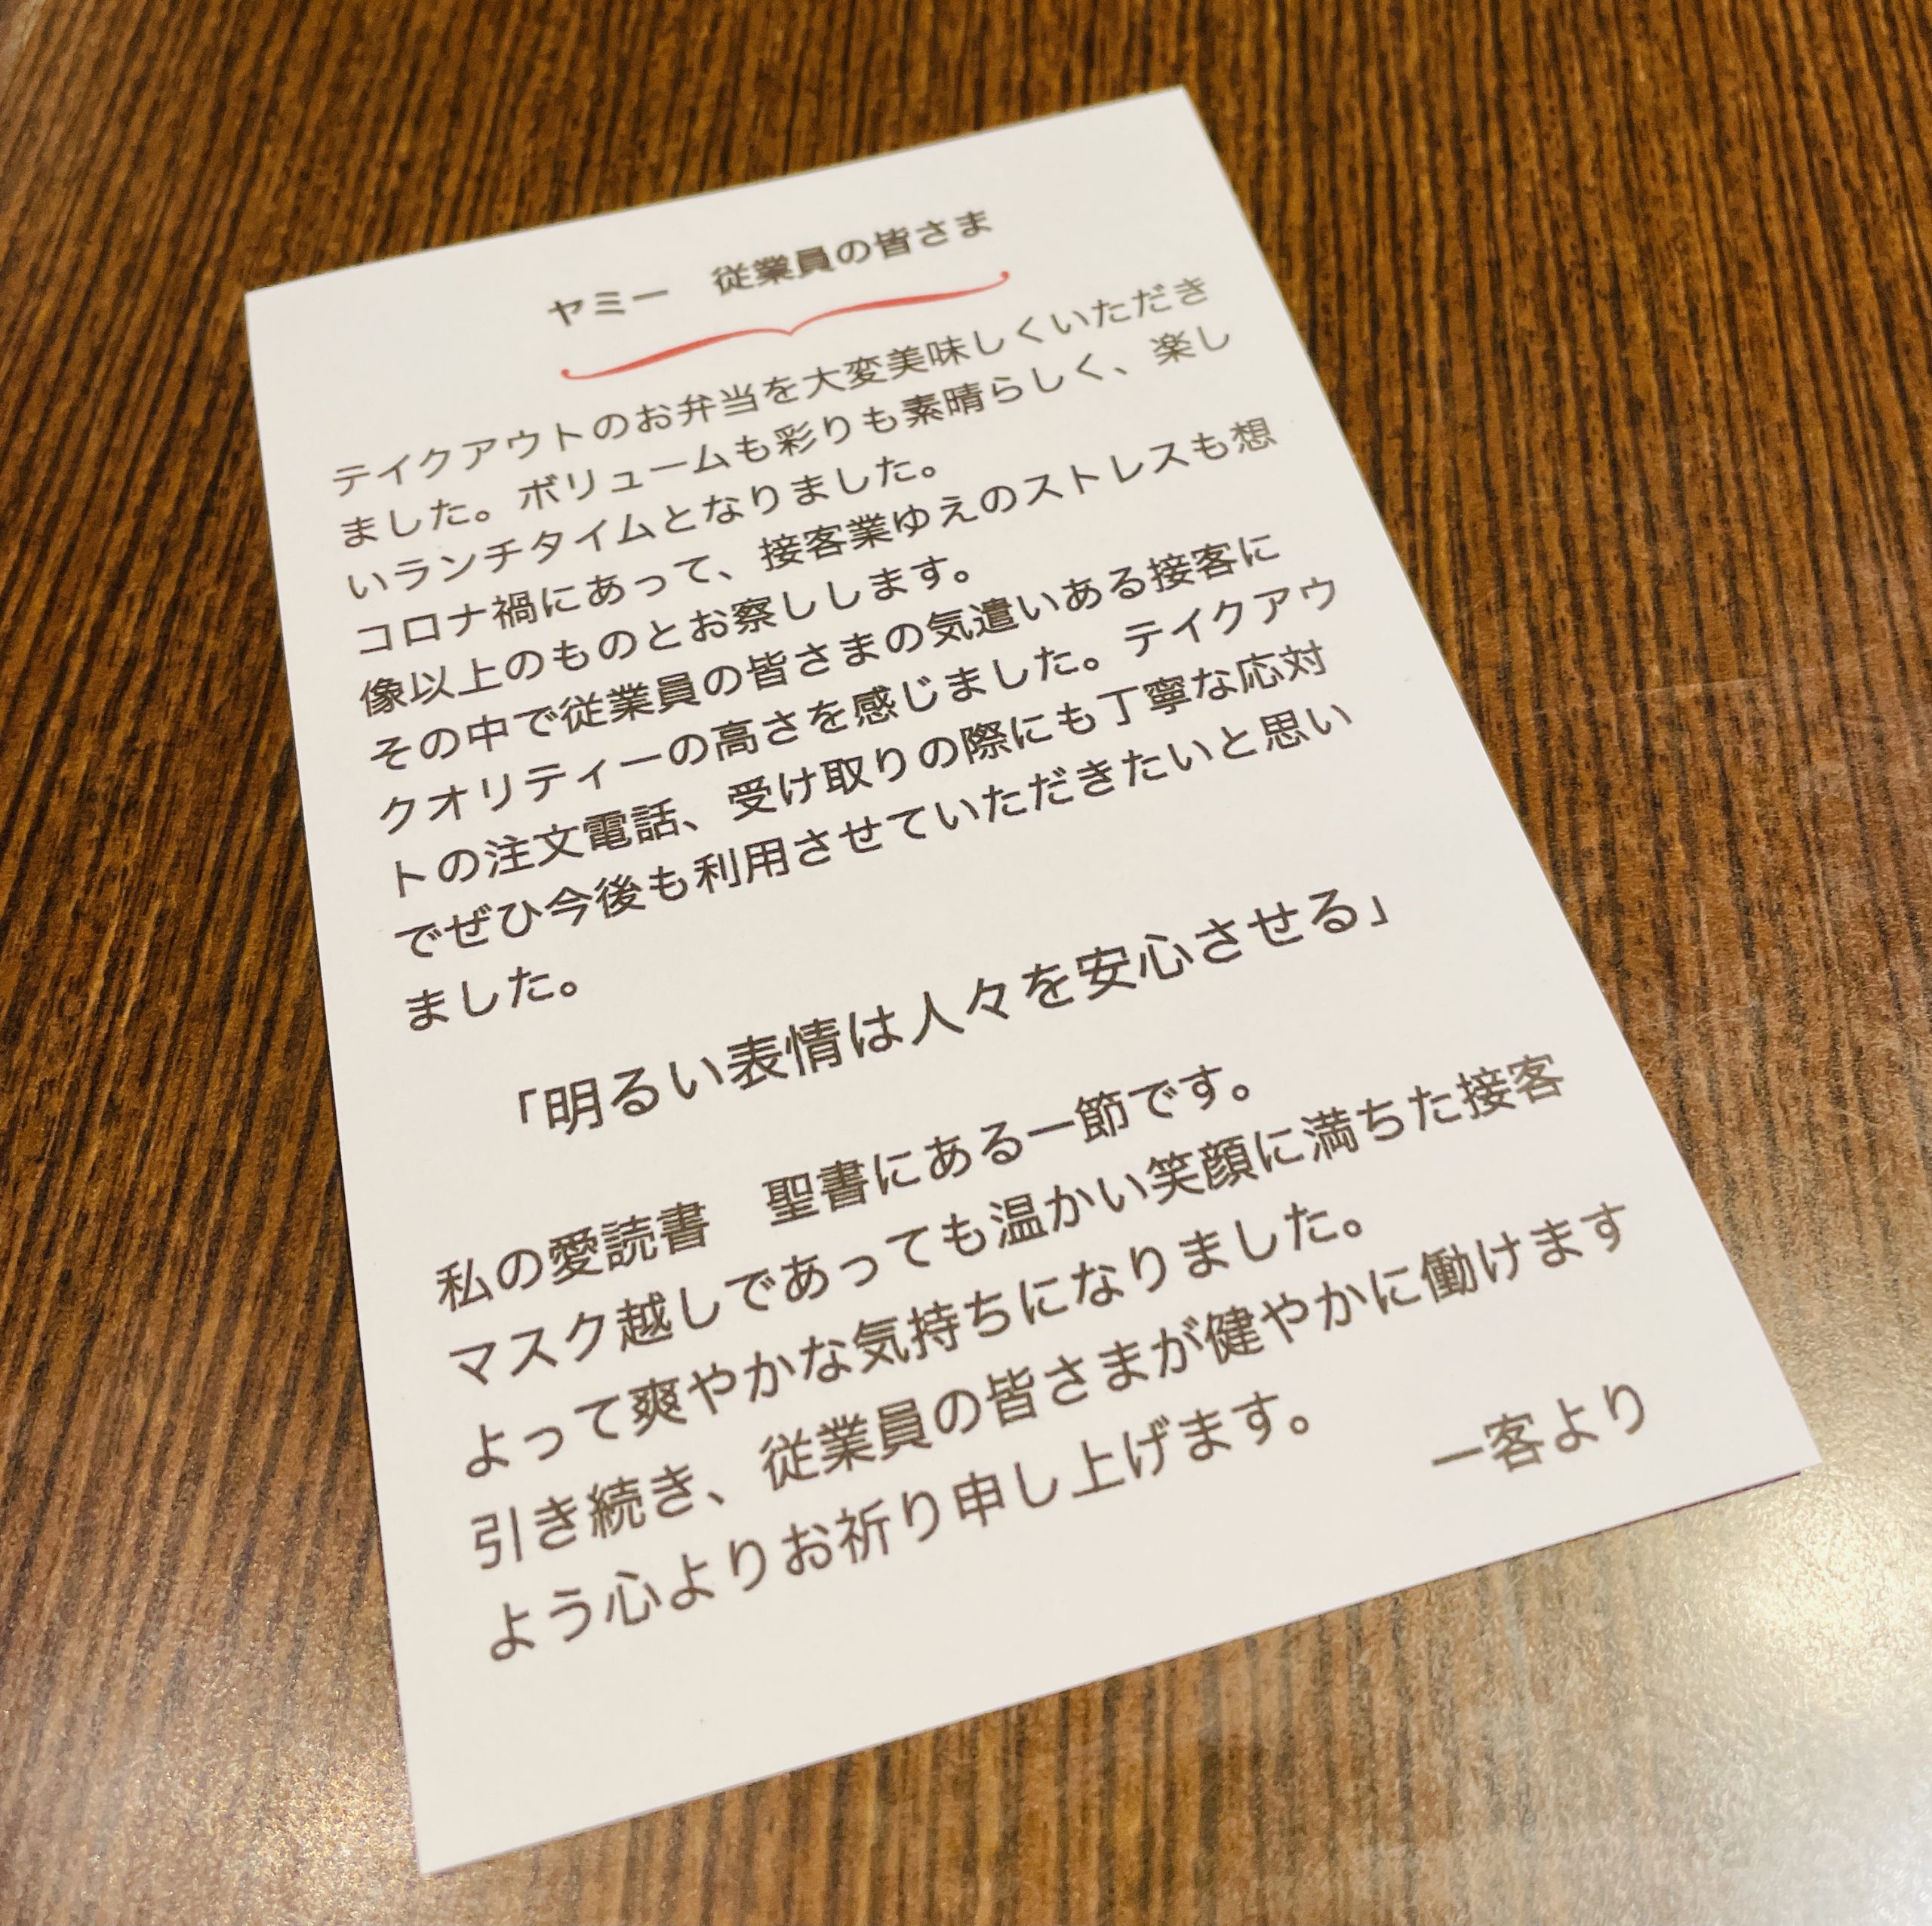 ヤミー　従業員の皆さま
テイクアウトのお弁当を大変美味しくいただき
ました。ボリュームも彩りも素晴らしく、楽し
いランチタイムとなりました。
コロナ禍にあって、接客業ゆえのストレスも想
像以上のものとお察しします。
その中で従業員の皆さまの気遣いある接客に
クオリティーの高さを感じました。テイクアウ
トの注文電話、受け取りの際にも丁寧な応対
でぜひ今後も利用させていただきたいと思い
ました。
「明るい表情は人々を安心させる」
私の愛読書　聖書にある一節です。
マスク越しであっても温かい笑顔に満ちた接客
よって爽やかな気持ちになりました。
引き続き、従業員の皆さまが健やかに働けます
よう心よりお祈り申し上げます。
一客より